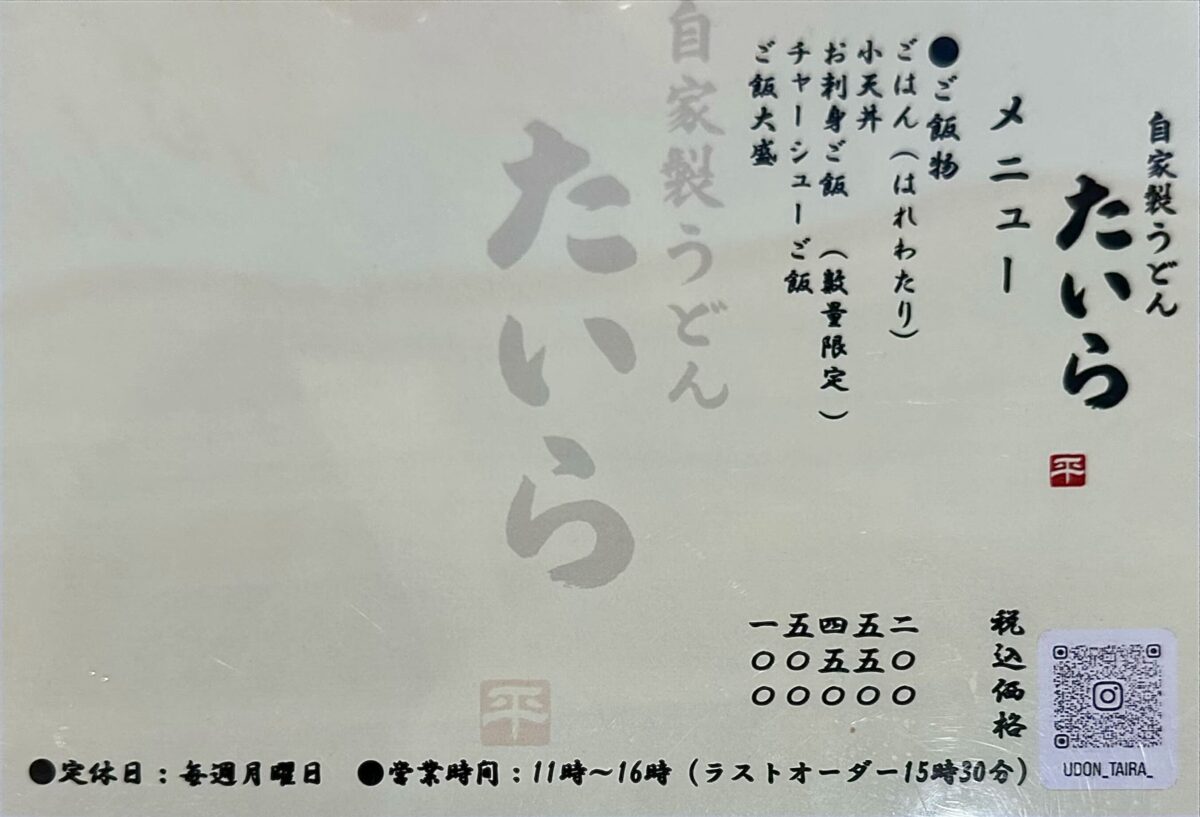 自家製うどん
たいら
平
メニュー
税込価格
●ご飯物
ごはん(はれわたり)
二〇〇
小天丼
五五〇
お刺身ご飯 (数量限定)
四五〇
チャーシューご飯
五〇〇
ご飯大盛
一〇〇
自家製うどん
たいら
平
●定休日:毎週月曜日
●営業時間:11時〜16時(ラストオーダー15時30分)
UDON_TAIRA_